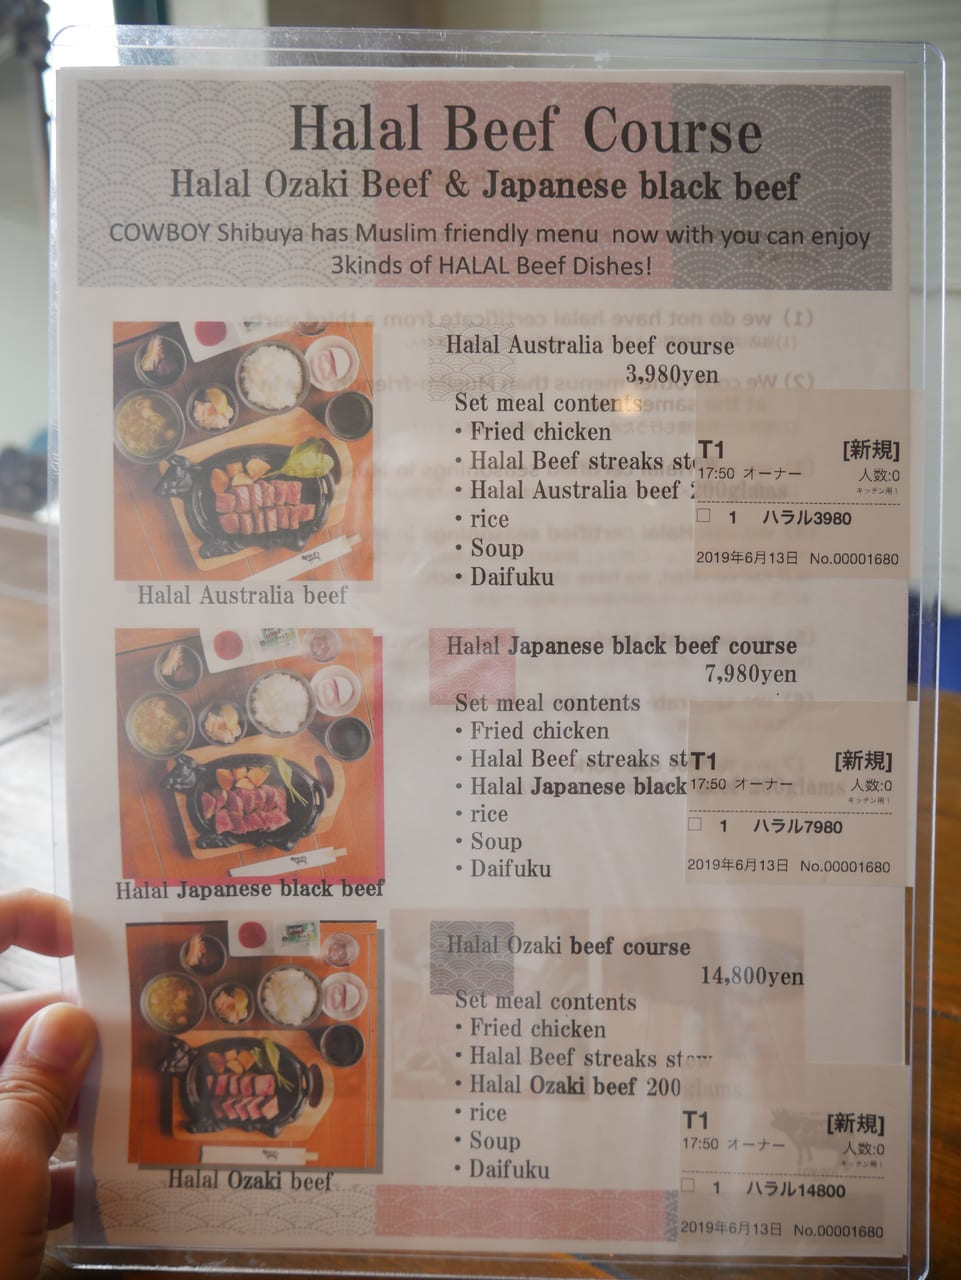 Halal Beef Course
Halal Ozaki Beef & Japanese black beef
COWBOY Shibuya has Muslim friendly menu now with you can enjoy
3kinds of HALAL Beef Dishes!
Halal Australia beef course
3,980yen
Set meal contents
・Fried chicken
・Halal Beef streaks
・Halal Australia beef
・rice
・Soup
・Daifuku
T1 [新規]
17:50 オーナー 人数:0
キッチン用1
□ 1 ハラル3980
2019年6月13日 No.00001680
Halal Australia beef
Halal Japanese black beef course
7,980yen
Set meal contents
・Fried chicken
・Halal Beef streaks
・Halal Japanese black
・rice
・Soup
・Daifuku
T1 [新規]
17:50 オーナー 人数:0
キッチン用1
□ 1 ハラル7980
2019年6月13日 No.00001680
Halal Japanese black beef
Halal Ozaki beef course
14,800yen
Set meal contents
・Fried chicken
・Halal Beef streaks stew
・Halal Ozaki beef 200glams
・rice
・Soup
・Daifuku
T1 [新規]
17:50 オーナー 人数:0
キッチン用1
□ 1 ハラル14800
2019年6月13日 No.00001680
Halal Ozaki beef